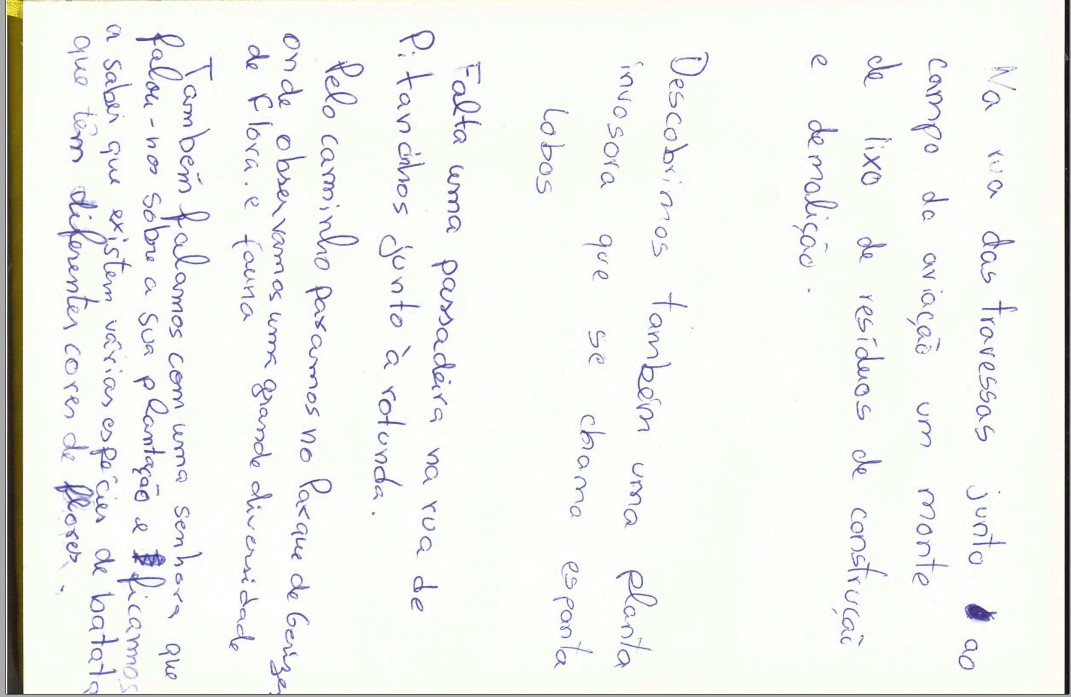 Na rua das travessas junto ao
campo da aviação um monte
de lixo de resíduos de construção
e demolição.
Descobrimos também uma planta
invosora que se chama espanta
lobos
Falta uma passadeira na rua de
Pitancinhos junto à rotunda.
Pelo caminho paramos no Parque de
onde observamos uma grande diversidade
de Flora. e fauna
Também falamos com uma senhora que
falou-nos sobre a sua plantação e ficamos
a saber que existem várias espécies de batata
que têm diferentes cores de flores.